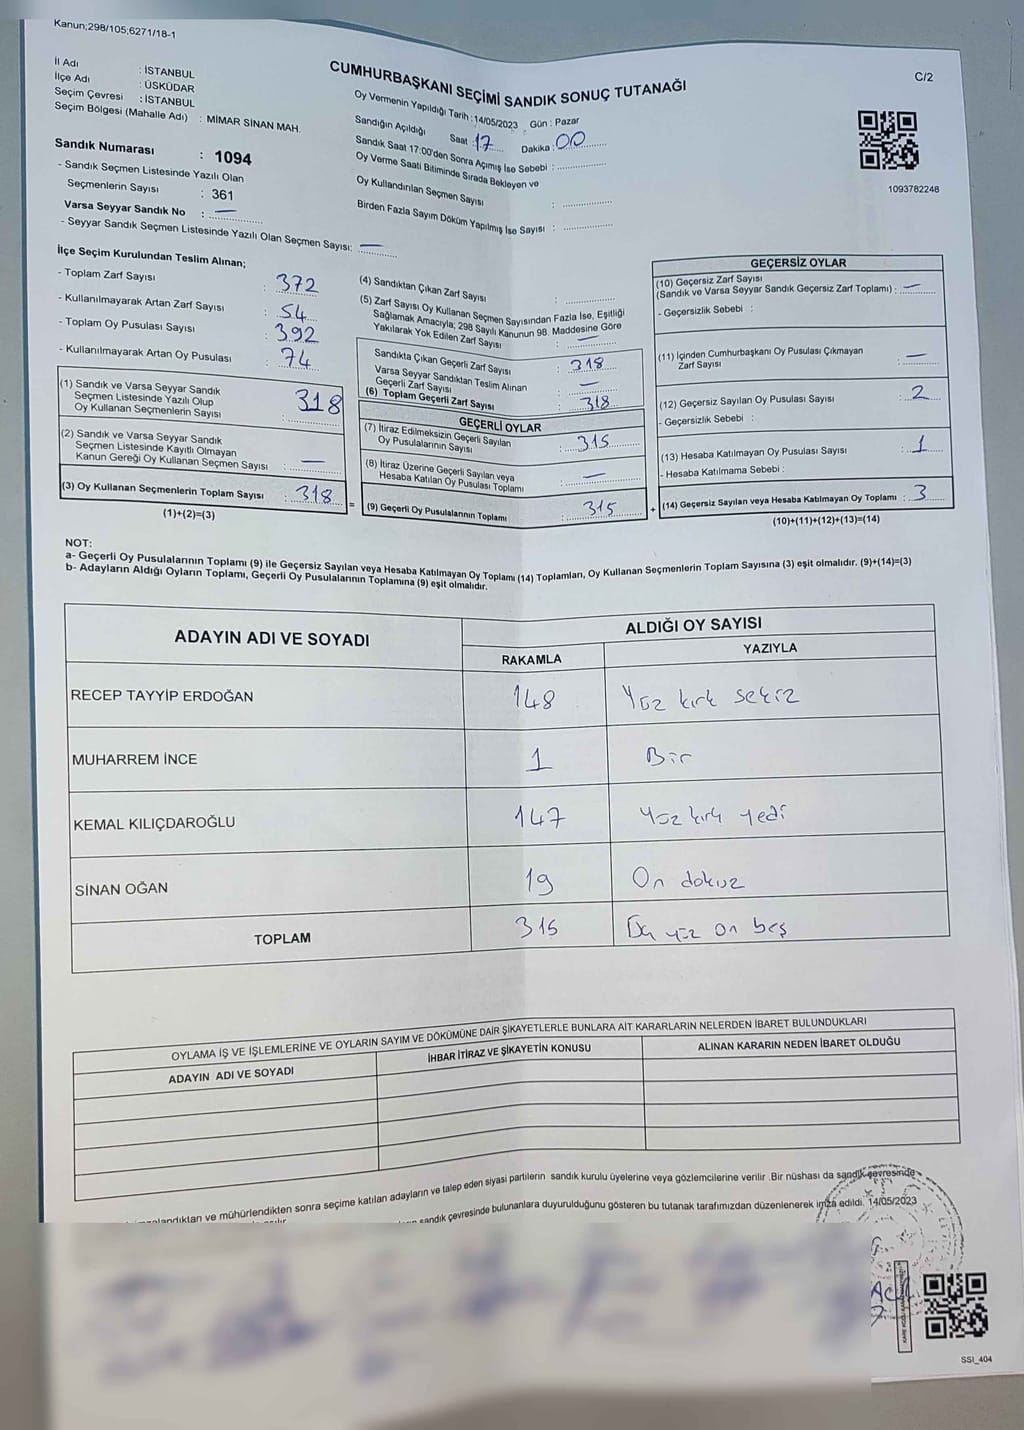 Kanun;298/105;6271/18-1
C/2
CUMHURBAŞKANI SEÇİMİ SANDIK SONUÇ TUTANAĞI
İl Adı : İSTANBUL
İlçe Adı : ÜSKÜDAR
Seçim Çevresi : İSTANBUL
Seçim Bölgesi (Mahalle Adı) : MİMAR SİNAN MAH.
Sandık Numarası : 1094
- Sandık Seçmen Listesinde Yazılı Olan
Seçmenlerin Sayısı : 361
Varsa Seyyar Sandık No : —
- Seyyar Sandık Seçmen Listesinde Yazılı Olan Seçmen Sayısı: —
Oy Vermenin Yapıldığı Tarih :14/05/2023 Gün : Pazar
Sandığın Açıldığı Saat : 17 Dakika : 00
Sandık Saat 17:00'den Sonra Açımış İse Sebebi :
Oy Verme Saati Bitiminde Sırada Bekleyen ve
Oy Kullandırılan Seçmen Sayısı :
Birden Fazla Sayım Döküm Yapılmış İse Sayısı :
1093782248
İlçe Seçim Kurulundan Teslim Alınan;
- Toplam Zarf Sayısı : 372
- Kullanılmayarak Artan Zarf Sayısı : 54
- Toplam Oy Pusulası Sayısı : 392
- Kullanılmayarak Artan Oy Pusulası : 74
(1) Sandık ve Varsa Seyyar Sandık
Seçmen Listesinde Yazılı Olup
Oy Kullanan Seçmenlerin Sayısı : 318
(2) Sandık ve Varsa Seyyar Sandık
Seçmen Listesinde Kayıtlı Olmayan
Kanun Gereği Oy Kullanan Seçmen Sayısı : —
(3) Oy Kullanan Seçmenlerin Toplam Sayısı : 318 =
(1)+(2)=(3)
(4) Sandıktan Çıkan Zarf Sayısı :
(5) Zarf Sayısı Oy Kullanan Seçmen Sayısından Fazla İse, Eşitliği
Sağlamak Amacıyla; 298 Sayılı Kanunun 98. Maddesine Göre
Yakılarak Yok Edilen Zarf Sayısı : —
Sandıkta Çıkan Geçerli Zarf Sayısı : 318
Varsa Seyyar Sandıktan Teslim Alınan
Geçerli Zarf Sayısı : —
(6) Toplam Geçerli Zarf Sayısı : 318
GEÇERLİ OYLAR
(7) İtiraz Edilmeksizin Geçerli Sayılan
Oy Pusulalarının Sayısı : 315
(8) İtiraz Üzerine Geçerli Sayılan veya
Hesaba Katılan Oy Pusulası Toplamı : —
(9) Geçerli Oy Pusulalarının Toplamı : 315 +
GEÇERSİZ OYLAR
(10) Geçersiz Zarf Sayısı
(Sandık ve Varsa Seyyar Sandık Geçersiz Zarf Toplamı) : —
- Geçersizlik Sebebi :
(11) İçinden Cumhurbaşkanı Oy Pusulası Çıkmayan
Zarf Sayısı : —
(12) Geçersiz Sayılan Oy Pusulası Sayısı : 2
- Geçersizlik Sebebi :
(13) Hesaba Katılmayan Oy Pusulası Sayısı : 1
- Hesaba Katılmama Sebebi :
(14) Geçersiz Sayılan veya Hesaba Katılmayan Oy Toplamı : 3
(10)+(11)+(12)+(13)=(14)
NOT:
a- Geçerli Oy Pusulalarının Toplamı (9) ile Geçersiz Sayılan veya Hesaba Katılmayan Oy Toplamı (14) Toplamları, Oy Kullanan Seçmenlerin Toplam Sayısına (3) eşit olmalıdır. (9)+(14)=(3)
b- Adayların Aldığı Oyların Toplamı, Geçerli Oy Pusulalarının Toplamına (9) eşit olmalıdır.
ADAYIN ADI VE SOYADI ALDIĞI OY SAYISI
RAKAMLA YAZIYLA
RECEP TAYYİP ERDOĞAN 148 Yüz kırk sekiz
MUHARREM İNCE 1 Bir
KEMAL KILIÇDAROĞLU 147 Yüz kırk yedi
SİNAN OĞAN 19 On dokuz
TOPLAM 315 yüz on beş
OYLAMA İŞ VE İŞLEMLERİNE VE OYLARIN SAYIM VE DÖKÜMÜNE DAİR ŞİKAYETLERLE BUNLARA AİT KARARLARIN NELERDEN İBARET BULUNDUKLARI
ADAYIN ADI VE SOYADI İHBAR İTİRAZ VE ŞİKAYETİN KONUSU ALINAN KARARIN NEDEN İBARET OLDUĞU
ve mühürlendikten sonra seçime katılan adayların ve talep eden siyasi partilerin sandık kurulu üyelerine veya gözlemcilerine verilir .Bir nüshası da sandık çevresinde
sandık çevresinde bulunanlara duyurulduğunu gösteren bu tutanak tarafımızdan düzenlenerek imza edildi. 14/05/2023
SSI_404